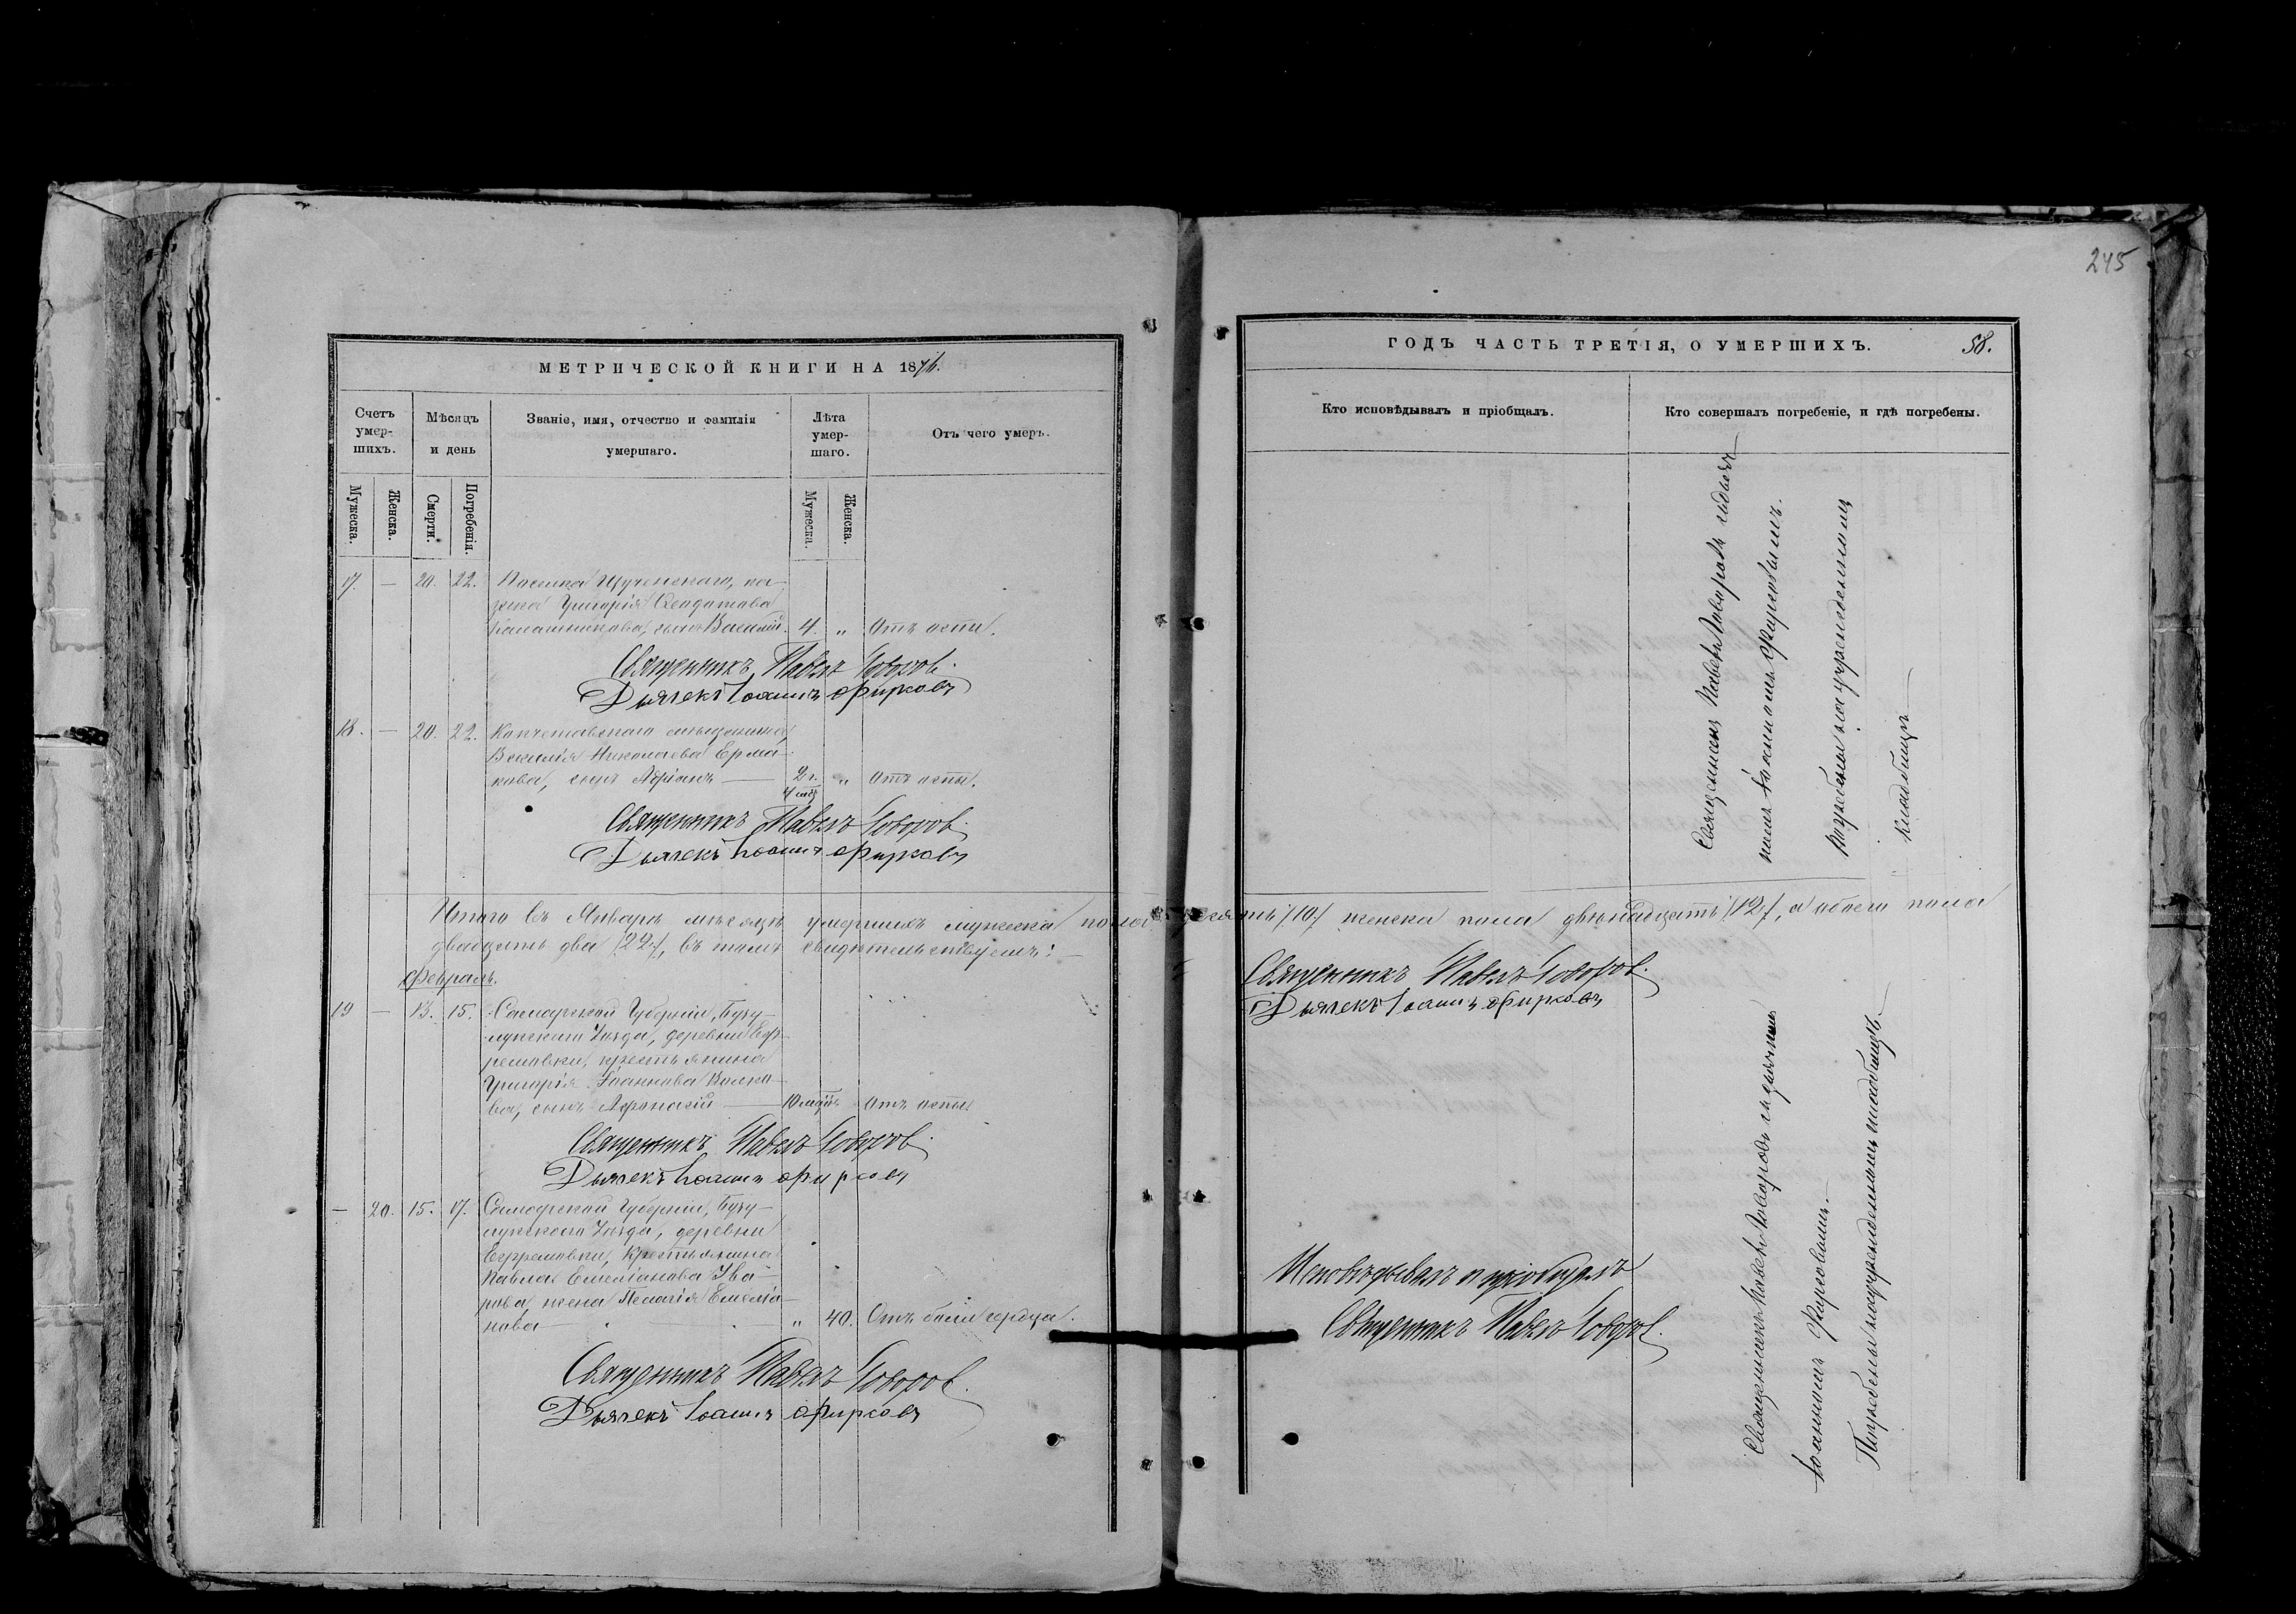 245
МЕТРИЧЕСКОЙ КНИГИ НА 1876.
Счетъ умер-шихъ.
Мѣсяцъ и день
Званіе, имя, отчество и фамилія умершаго.
Лѣта умер-шаго.
Отъ чего умеръ.
Мужеска.
Женска.
Смерти.
Погребенія.
Мужеска.
Женска.
17. — 20. 22. Поселка Щученскаго, ка-
зака Григорія
Калашникова, сынъ Василій. 4. „ Отъ оспы.
Священникъ Павелъ Говоровъ.
Дьячекъ Іоаннъ Фирсовъ
18. — 20. 22. Кокчетавскаго мѣщанина
Василія Николаева Ерма-
кова, сынъ Адріанъ — 2 г. „ Отъ оспы.
4 мѣс
Священникъ Павелъ Говоровъ.
Дьячекъ Іоаннъ Фирсовъ
Итого въ Январѣ мѣсяцѣ умершихъ мужеска пола десять /10/ женска пола двѣнадцать /12/, а обоего пола
двадцать два /22/, въ томъ свидѣтельствуемъ: —
Февраль.
19 — 13. 15. Самарской Губерніи, Бузу-
лукскаго Уѣзда, деревни Еф-
ремовки, крестьянина
Григорія Іоаннова Волко-
ва, сынъ Афонасій — 10 мѣс. Отъ оспы
Священникъ Павелъ Говоровъ.
Дьячекъ Іоаннъ Фирсовъ
— 20. 15. 17. Самарской Губерніи, Бузу-
лукскаго Уѣзда, деревни
Ефремовки, крестьянина
Павла Емеліанова Ува-
рова, жена Пелагія Емеліа-
нова — „ 40. Отъ боли сердца.
Священникъ Павелъ Говоровъ.
Дьячекъ Іоаннъ Фирсовъ
ГОДЪ ЧАСТЬ ТРЕТІЯ, О УМЕРШИХЪ. 58.
Кто исповѣдывалъ и пріобщалъ.
Кто совершалъ погребеніе, и гдѣ погребены.
Священникъ Павелъ Говоровъ съ дьяч-
комъ Іоанномъ Фирсовымъ.
Погребены на учрежденномъ
кладбищѣ —
Священникъ Павелъ Говоровъ.
Дьячекъ Іоаннъ Фирсовъ
Исповѣдывалъ и пріобщалъ
Священникъ Павелъ Говоровъ.
Священникъ Павелъ Говоровъ съ дьячкомъ
Іоанномъ Фирсовымъ. —
Погребены на учрежденномъ кладбищѣ. —